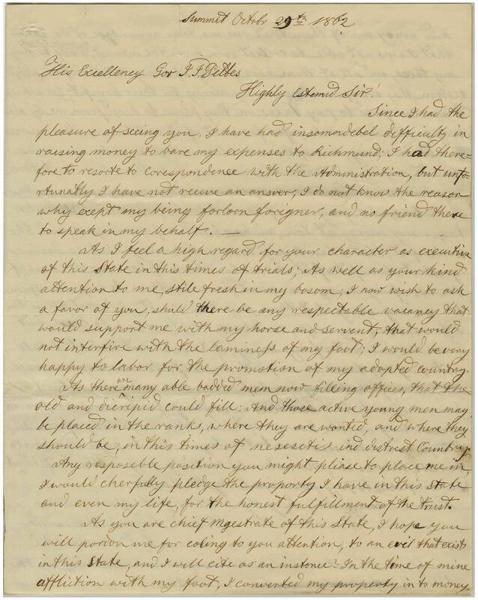 Summit Octobr 29th 1862
His Excellency Gov J. J. Pettes
Highly Estemed Sir.
Since I had the
pleasure of seeing you, I have had insomodebel difficulty in
raising money to bare my expenses to Richmond; I had there=
fore to resorte to corespondence with the Administration, but unfor
tunatly I have not receive an answer, I do not know the reason
whiy exept my being forlorn foreigner, and no friend there
to speak in my behalf. —
As I feel a high regard, for your character as executive
of this State in this times of trials; As well as your kind
attention to me, stile fresh in my bosom, I now wish to ask
a favor of you, shuld there be any respectable vacancy that
would support me with my horse and servent; that would
not interfire with the laminess of my foot; I would be very
happy to labor for the promotion of my adopted country.
As there are many able bodied men now filling offices, that the
old and dicripid could fill; And those active young men may
be placed in the ranks, where they are wanted, and where they
should be, in this times of nesesetis ind distrect Country.
Any resposible position you might, pliase to place me in,
I would cherfully pledge the property I have in this State
and even my life, for the honest fulfillment of the trust.
As you are chief Magestrate of this State, I hope you
will pordon me for coling to you attention, to an evil that exists
in this State, and I will cite as an instence: In the time of mine
affliction with my foot, I converted my property in to money